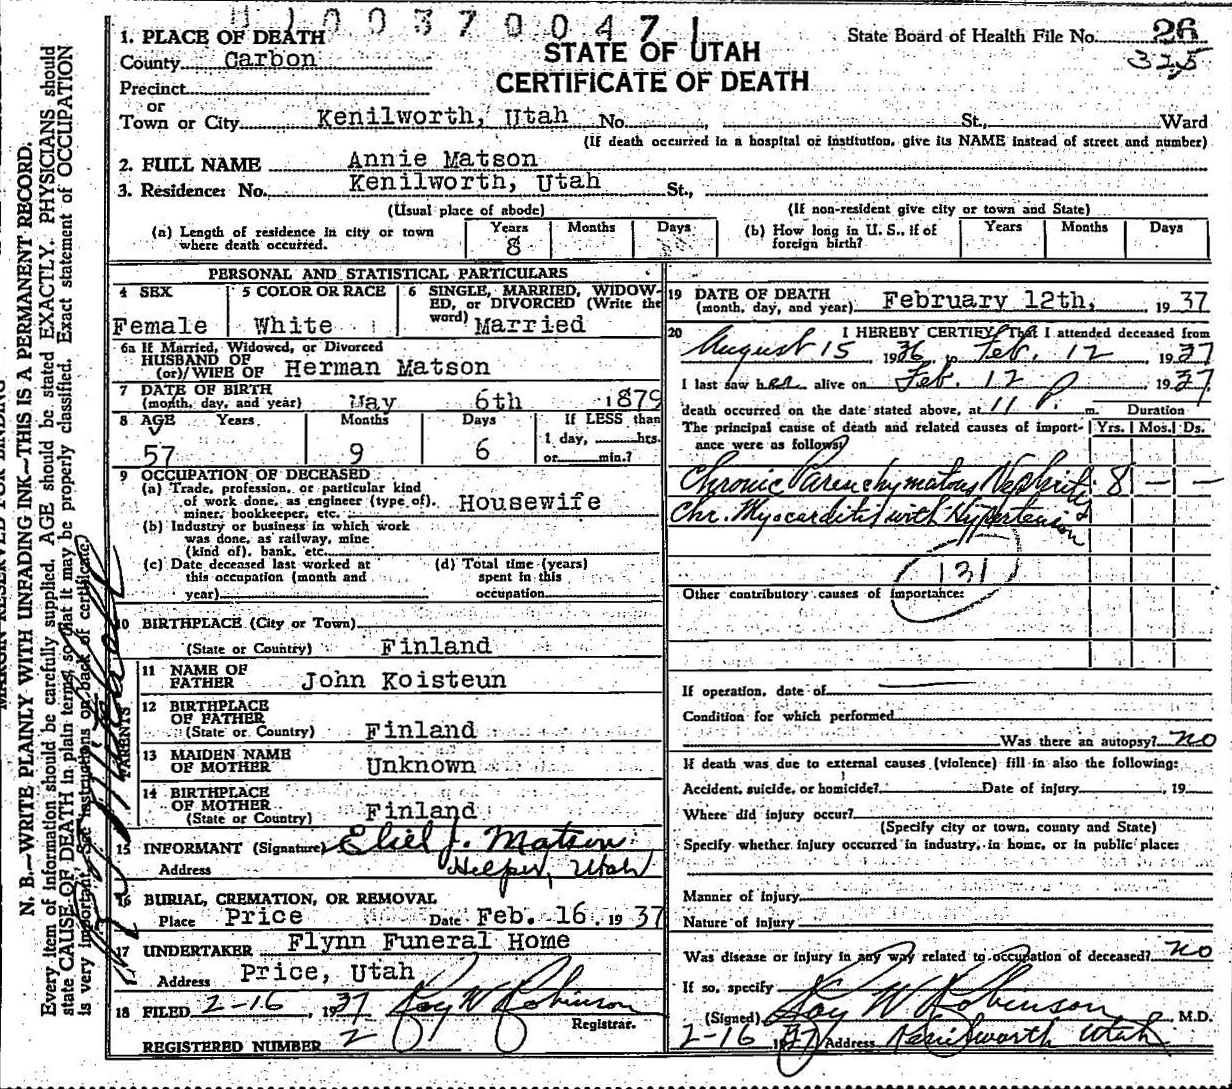 0100370047 1
1. PLACE OF DEATH
County Carbon
Precinct
or
Town or City Kenilworth, Utah No. , St., Ward
(If death occurred in a hospital or institution, give its NAME instead of street and number)
STATE OF UTAH
CERTIFICATE OF DEATH
State Board of Health File No. 26
325
2. FULL NAME Annie Matson
3. Residence: No. Kenilworth, Utah St.,
(Usual place of abode) (If non-resident give city or town and State)
(a) Length of residence in city or town where death occurred. Years 8 Months Days
(b) How long in U. S., if of foreign birth? Years Months Days
PERSONAL AND STATISTICAL PARTICULARS
4 SEX Female
5 COLOR OR RACE White
6 SINGLE, MARRIED, WIDOWED, or DIVORCED (Write the word) Married
6a If Married, Widowed, or Divorced
HUSBAND OF
(or) WIFE OF Herman Matson
7 DATE OF BIRTH
(month, day, and year) May 6th 1879
8 AGE Years Months Days If LESS than
57 9 6 1 day, hrs.
or min.?
9 OCCUPATION OF DECEASED
(a) Trade, profession, or particular kind
of work done, as engineer (type of),
miner, bookkeeper, etc. Housewife
(b) Industry or business in which work
was done, as railway, mine
(kind of), bank, etc.
(c) Date deceased last worked at
this occupation (month and
year)
(d) Total time (years)
spent in this
occupation
10 BIRTHPLACE (City or Town)
(State or Country) Finland
PARENTS
11 NAME OF
FATHER John Koisteun
12 BIRTHPLACE
OF FATHER
(State or Country) Finland
13 MAIDEN NAME
OF MOTHER Unknown
14 BIRTHPLACE
OF MOTHER
(State or Country) Finland
15 INFORMANT (Signature) Eliel J. Matson
Address Helper, Utah
16 BURIAL, CREMATION, OR REMOVAL
Place Price Date Feb. 16. 1937
17 UNDERTAKER Flynn Funeral Home
Address Price, Utah
18 FILED 2-16, 1937 Roy W Robinson
Registrar.
REGISTERED NUMBER 2
19 DATE OF DEATH
(month, day, and year) February 12th, 1937
20 I HEREBY CERTIFY, That I attended deceased from
August 15 1936 to Feb. 12 1937
I last saw her alive on Feb. 12 1937
death occurred on the date stated above, at 11 P. m. Duration
The principal cause of death and related causes of import- Yrs. Mos. Ds.
ance were as follows:
Chronic Parenchymatous Nephritis 8 — —
Chr. Myocarditis with Hypertension
131
Other contributory causes of importance:
If operation, date of
Condition for which performed
Was there an autopsy? no
If death was due to external causes (violence) fill in also the following:
Accident, suicide, or homicide? Date of injury , 19
Where did injury occur?
(Specify city or town, county and State)
Specify whether injury occurred in industry, in home, or in public place:
Manner of injury
Nature of injury
Was disease or injury in any way related to occupation of deceased? no
If so, specify
(Signed) Roy W Robinson M.D.
2-16 1937 Address Kenilworth Utah
N. B.—WRITE PLAINLY WITH UNFADING INK—THIS IS A PERMANENT RECORD.
Every item of information should be carefully supplied. AGE should be stated EXACTLY. PHYSICIANS should
state CAUSE OF DEATH in plain terms, so that it may be properly classified. Exact statement of OCCUPATION
is very important. See instructions on back of certificate.